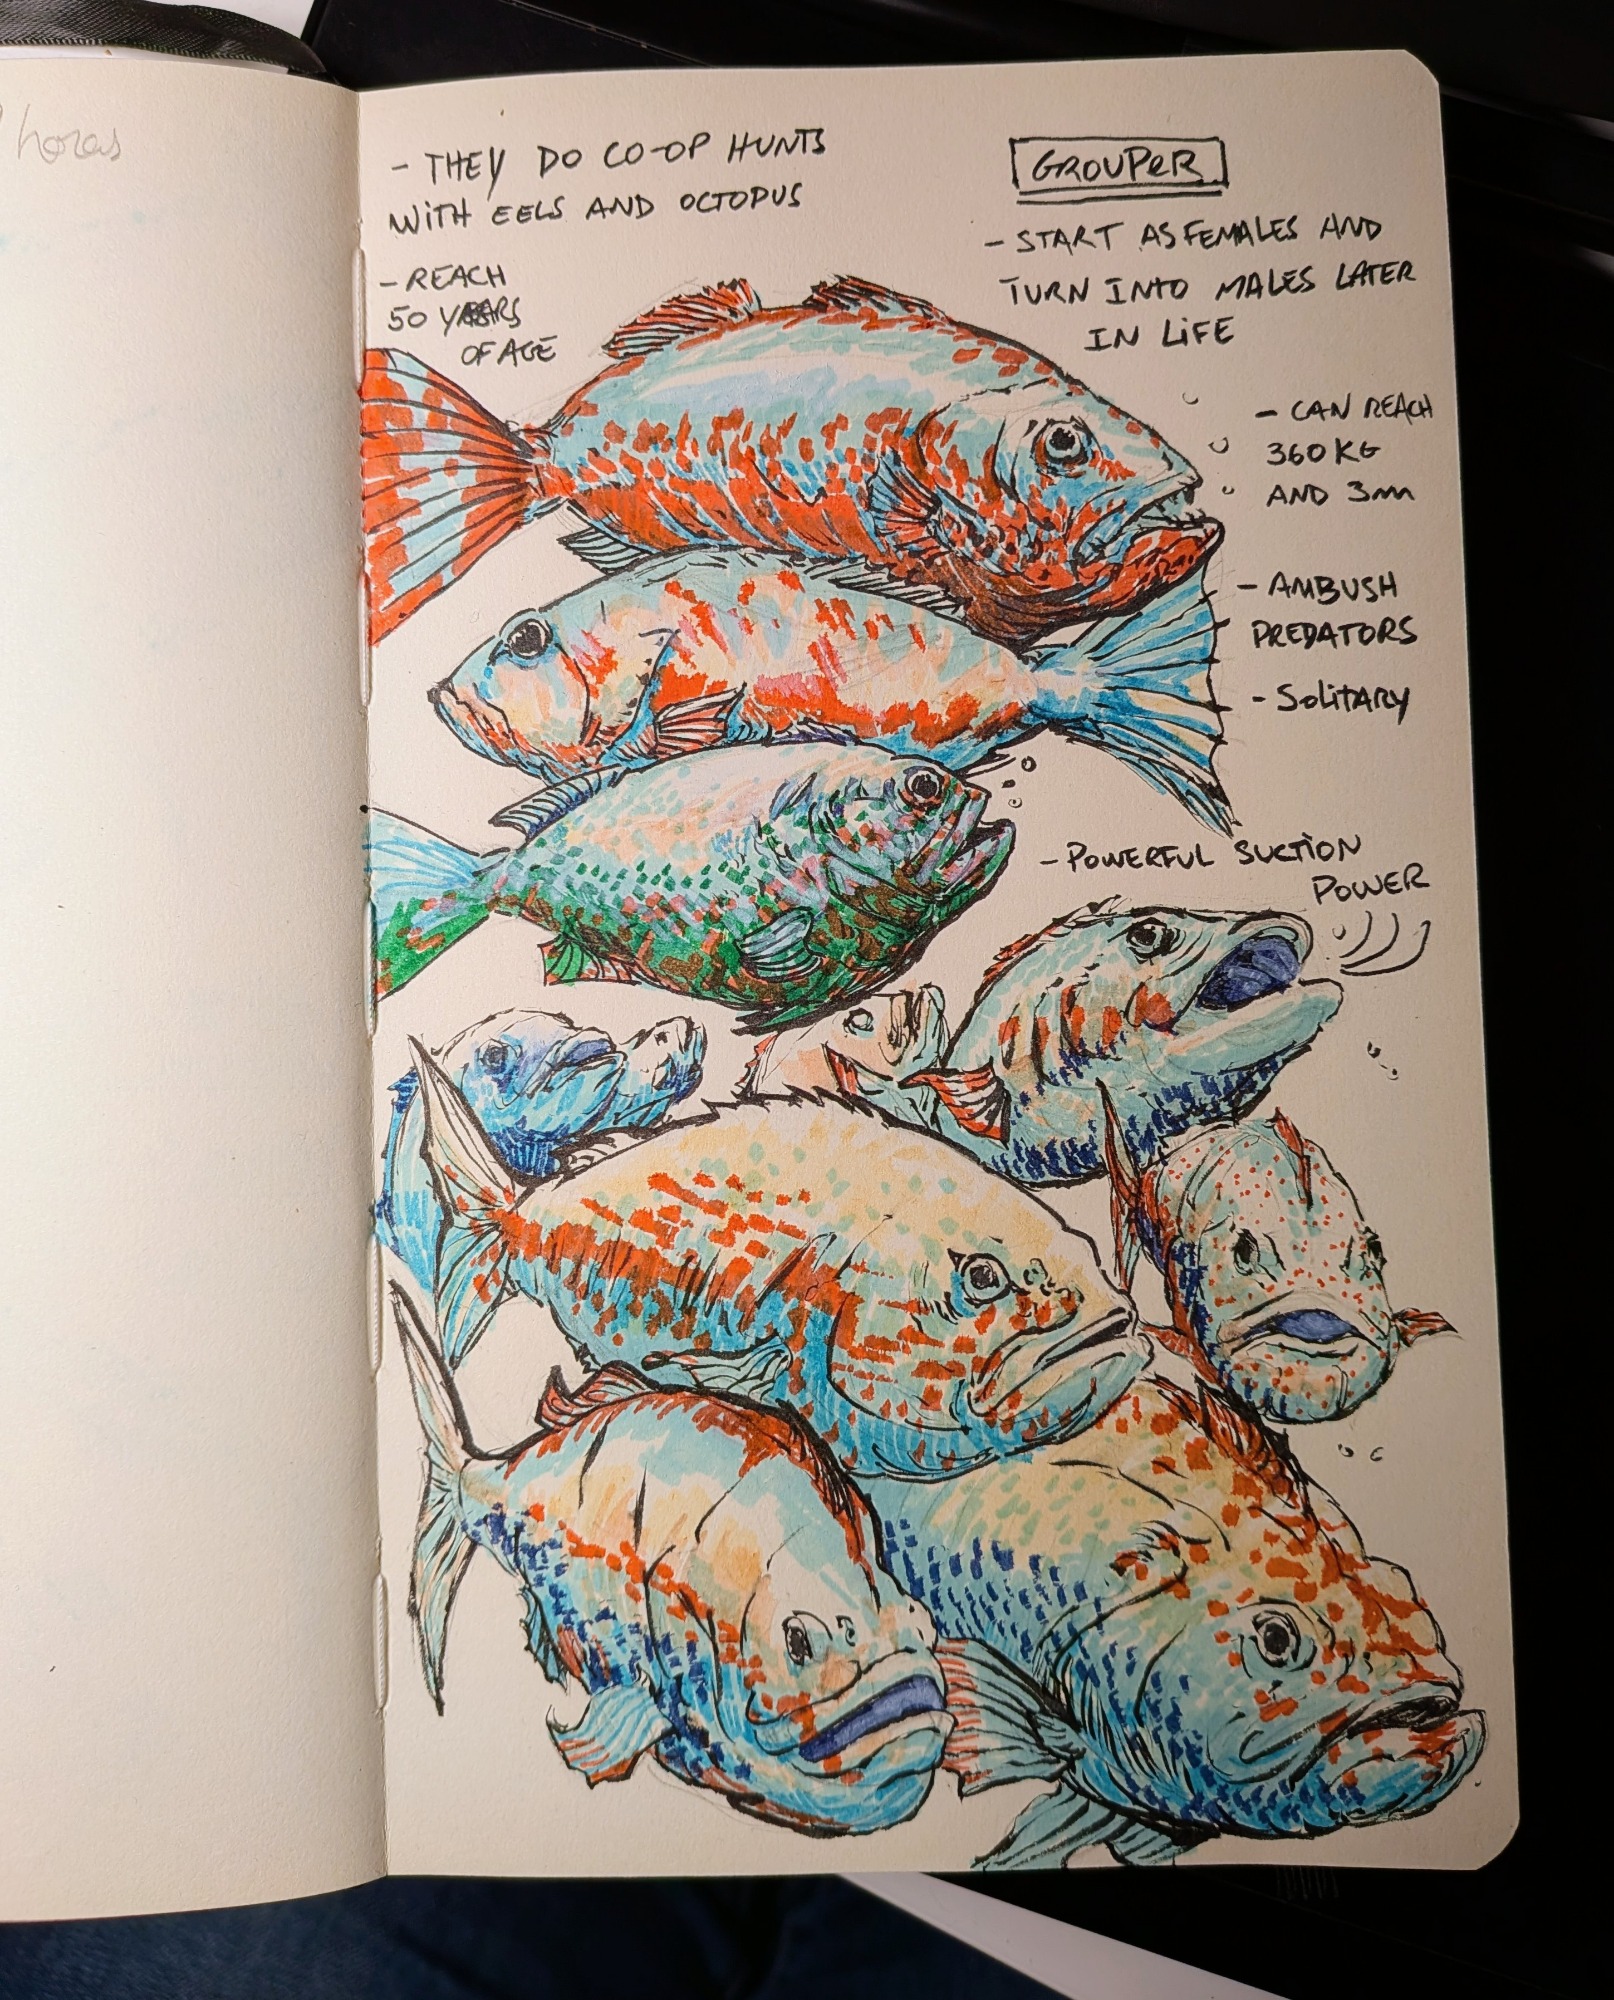 horas
- THEY DO CO-OP HUNTS
WITH EELS AND OCTOPUS
- REACH
50 YEARS
OF AGE
GROUPER
- START AS FEMALES AND
TURN INTO MALES LATER
IN LIFE
- CAN REACH
360 KG
AND 3m
- AMBUSH
PREDATORS
- SOLITARY
- POWERFUL SUCTION
POWER